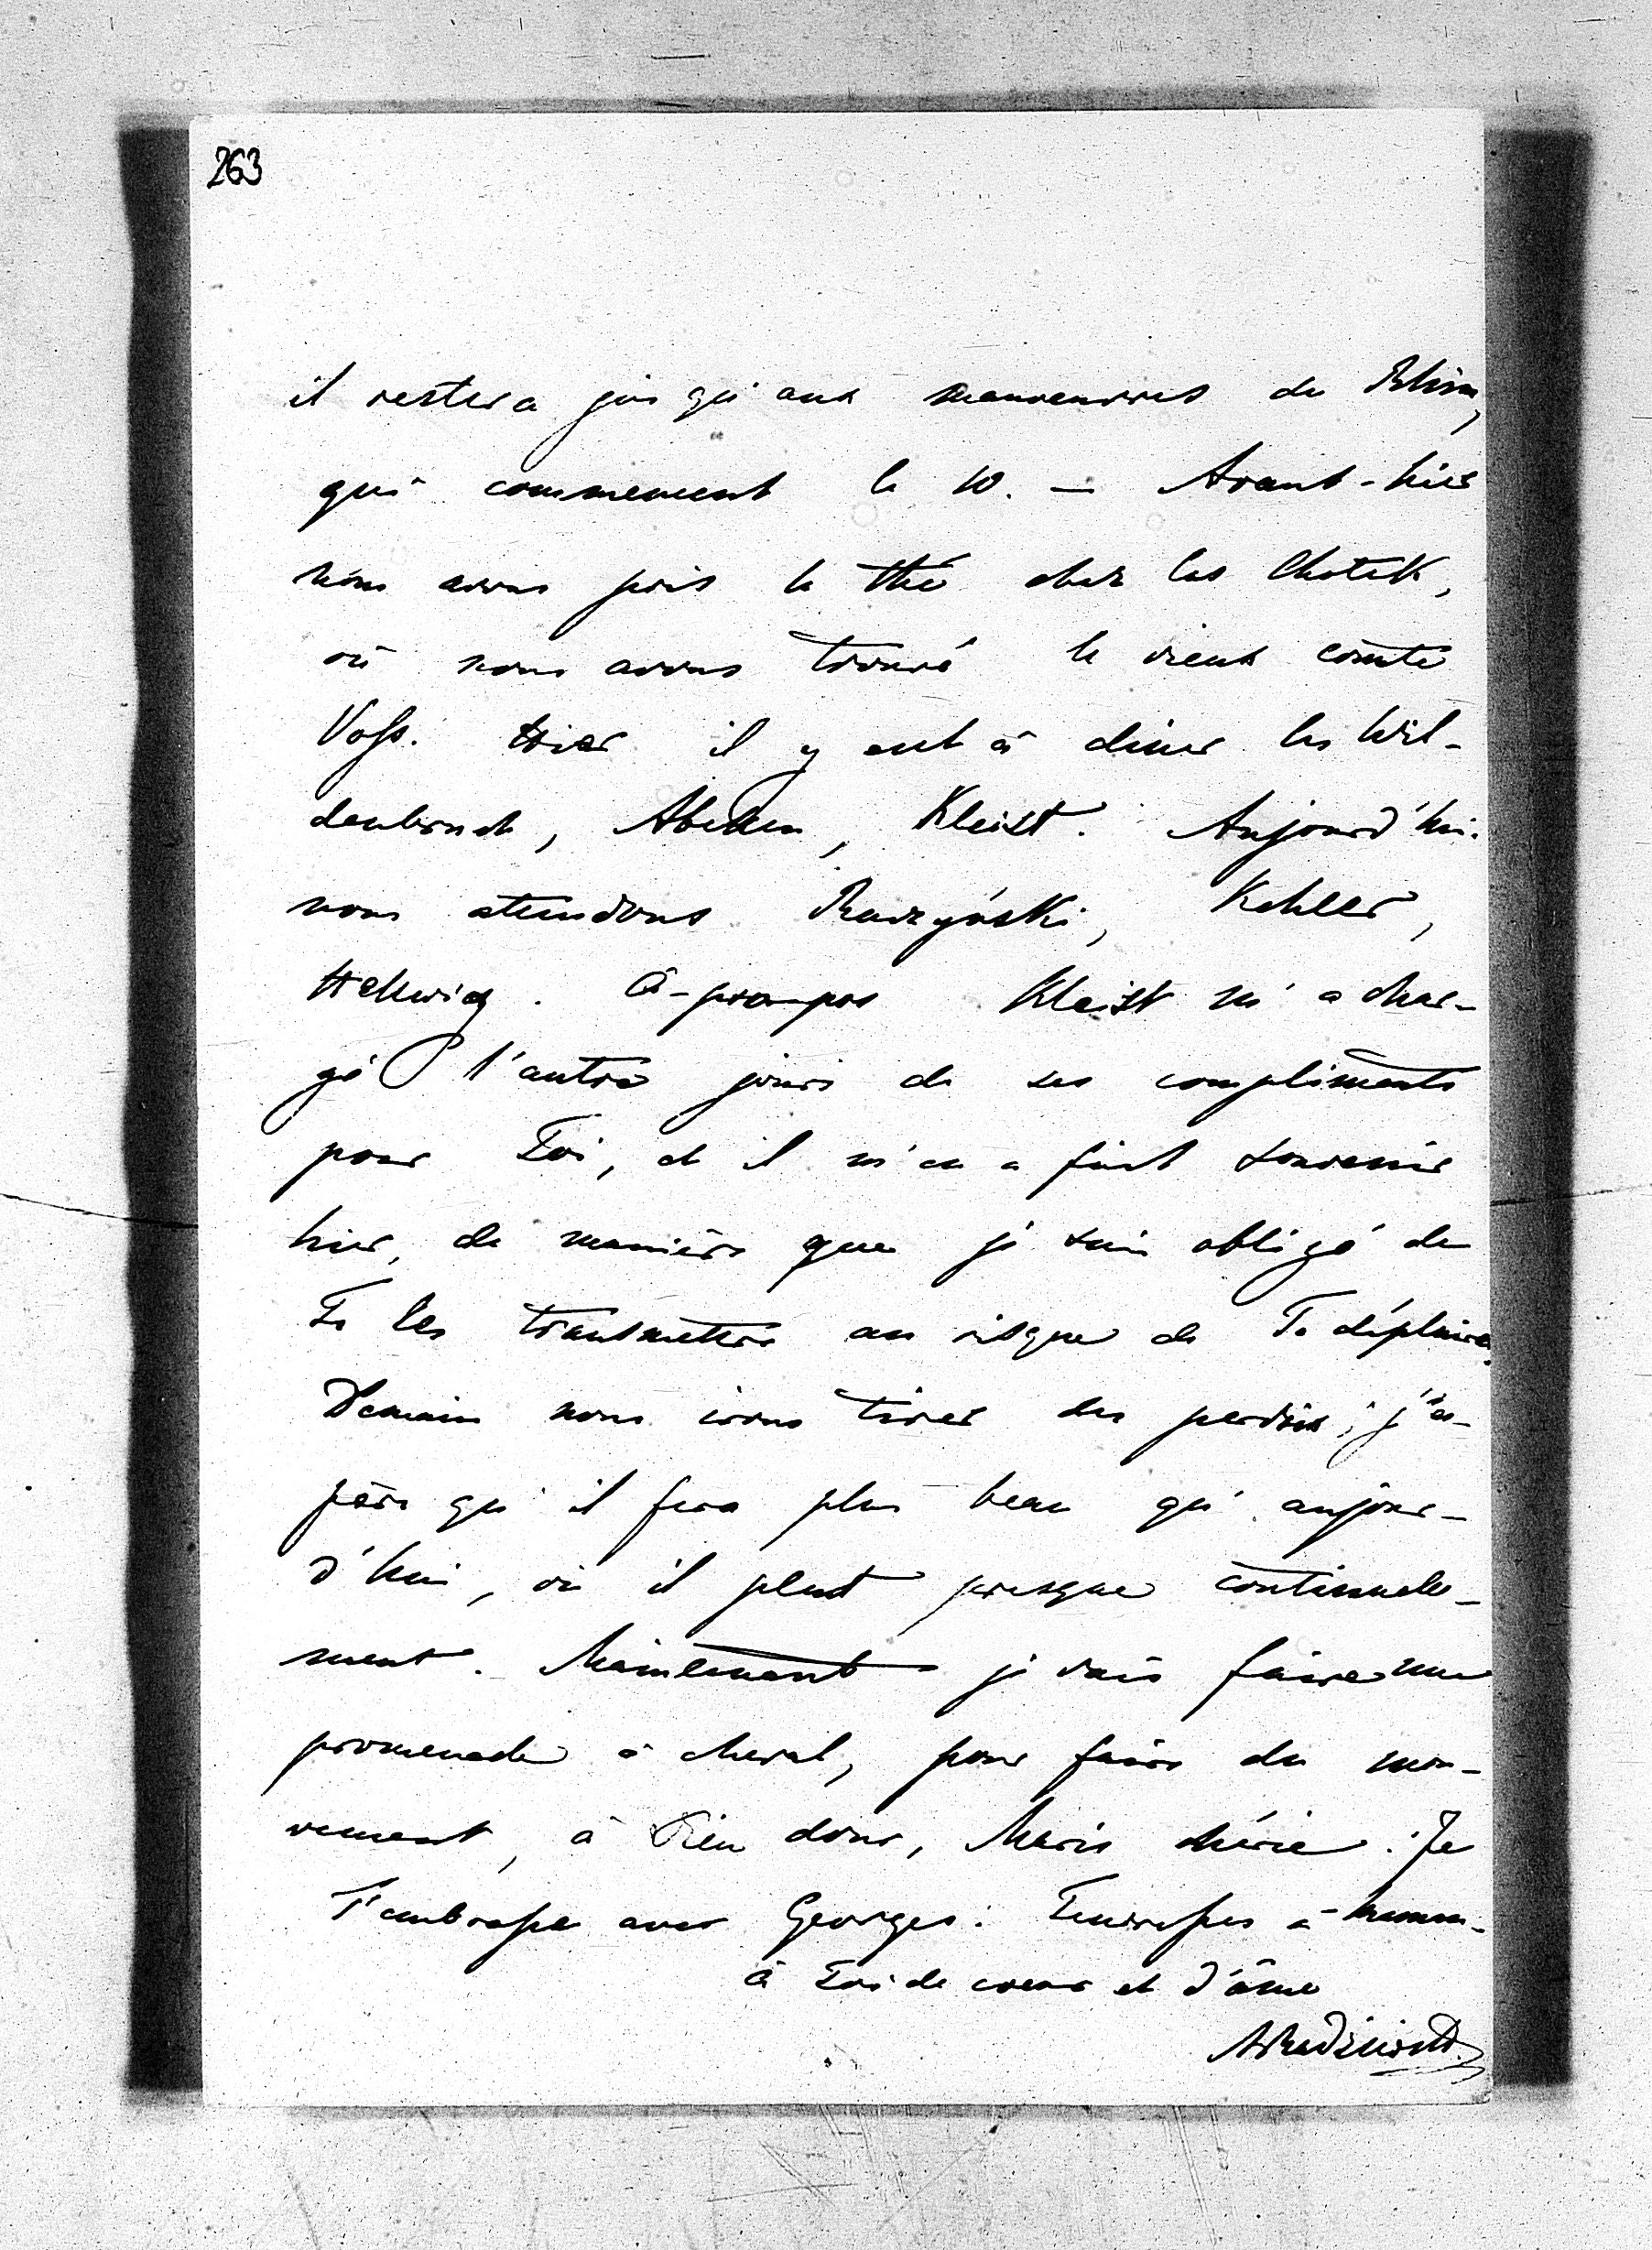 263
il restera jusqu'aux manoeuvres du Rhin,
qui commencent le 10. — Avant-hier
nous avons pris le thé chez les Chotek,
où nous avons trouvé le vieux comte
Voss. Hier il y eut à dîner les Wil-
denbruch, Abeken, Kleist. Aujourd'hui
nous attendons Raczyński, Kehler,
Hellwig. à-propos Kleist m'a char-
gé l'autre jour de ses compliments
pour Toi, et il m'en a fait souvenir
hier, de manière que je suis obligé de
Te les transmettre au risque de Te déplaire.
Demain nous irons tirer des perdrix; j'es-
père qu'il fera plus beau qu'aujour-
d'hui, où il pleut presque continuelle-
ment. Maintenant je vais faire une
promenade à cheval, pour faire du mou-
vement, à Dieu donc, Marie chérie. Je
T'embrasse avec Georges. Tendresses à Maman.
à Toi de coeur et d'âme
ARadziwill